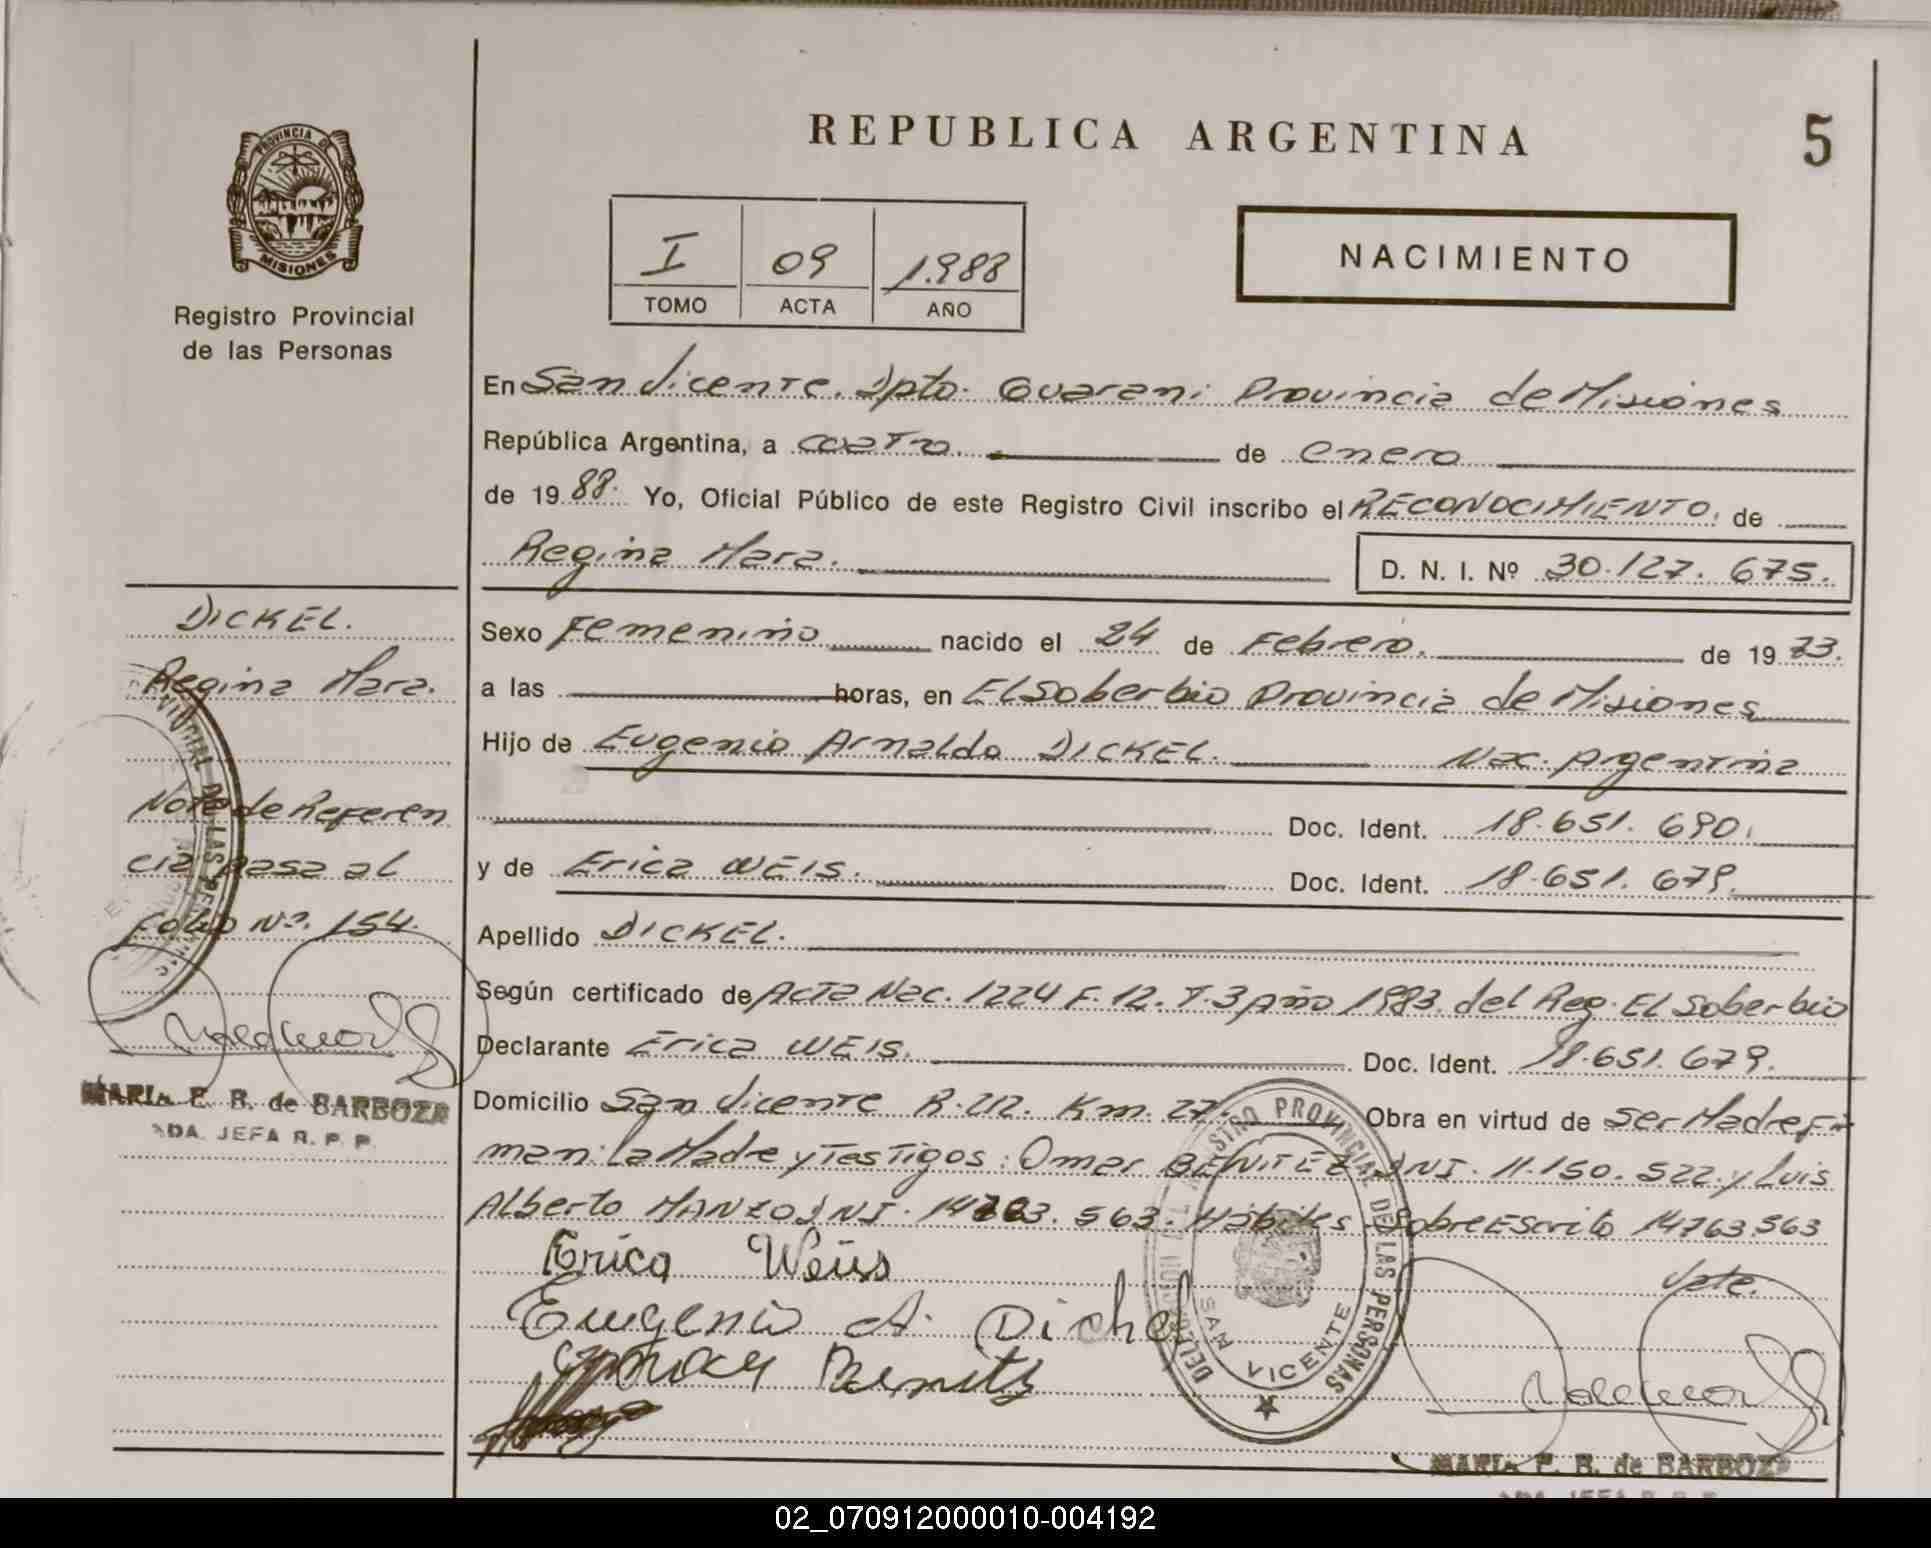 REPUBLICA ARGENTINA
5
PROVINCIA DE
MISIONES
Registro Provincial
de las Personas
I 09 1.988
TOMO ACTA AÑO
NACIMIENTO
En San Vicente. Dpto. Guarani Provincia de Misiones
República Argentina, a cuatro. de enero
de 1988. Yo, Oficial Público de este Registro Civil inscribo el RECONOCIMIENTO. de
Regina Mara. D. N. I. Nº 30.127.675.
Sexo Femenino nacido el 24 de Febrero. de 19
a las horas, en El Soberbio Provincia de Misiones
Hijo de Eugenio Arnaldo DICKEL. Nac. Argentina
Doc. Ident. 18.651.690.
y de Erica WEIS. Doc. Ident. 18.651.679.
Apellido DICKEL.
Según certificado de Acta Nac. 1224 F. 12. T. 3 Año 1983. del Reg. El Soberbio
Declarante Erica WEIS. Doc. Ident. 18.651.679.
Domicilio San Vicente R. 212. Km. 27. Obra en virtud de Ser Madre Fir
man: La Madre y Testigos: Omar BENITEZ DNI. 11.150.522. y Luis
Alberto MANZO DNI. 14763.563. Hábiles Sobre Escrito 14763.563
Vale.
Erica Weiis
Eugenio A. Dickel
Omar Benitez
DICKEL.
Regina Mara.
Nota de Referen
cia pasa al
Folio Nº. 154.
MARIA E. R. de BARBOZA
DA. JEFA R. P. P.
DEL REGISTRO PROVINCIAL DE LAS PERSONAS
SAN VICENTE
MARIA E. R. de BARBOZA
02_070912000010-004192